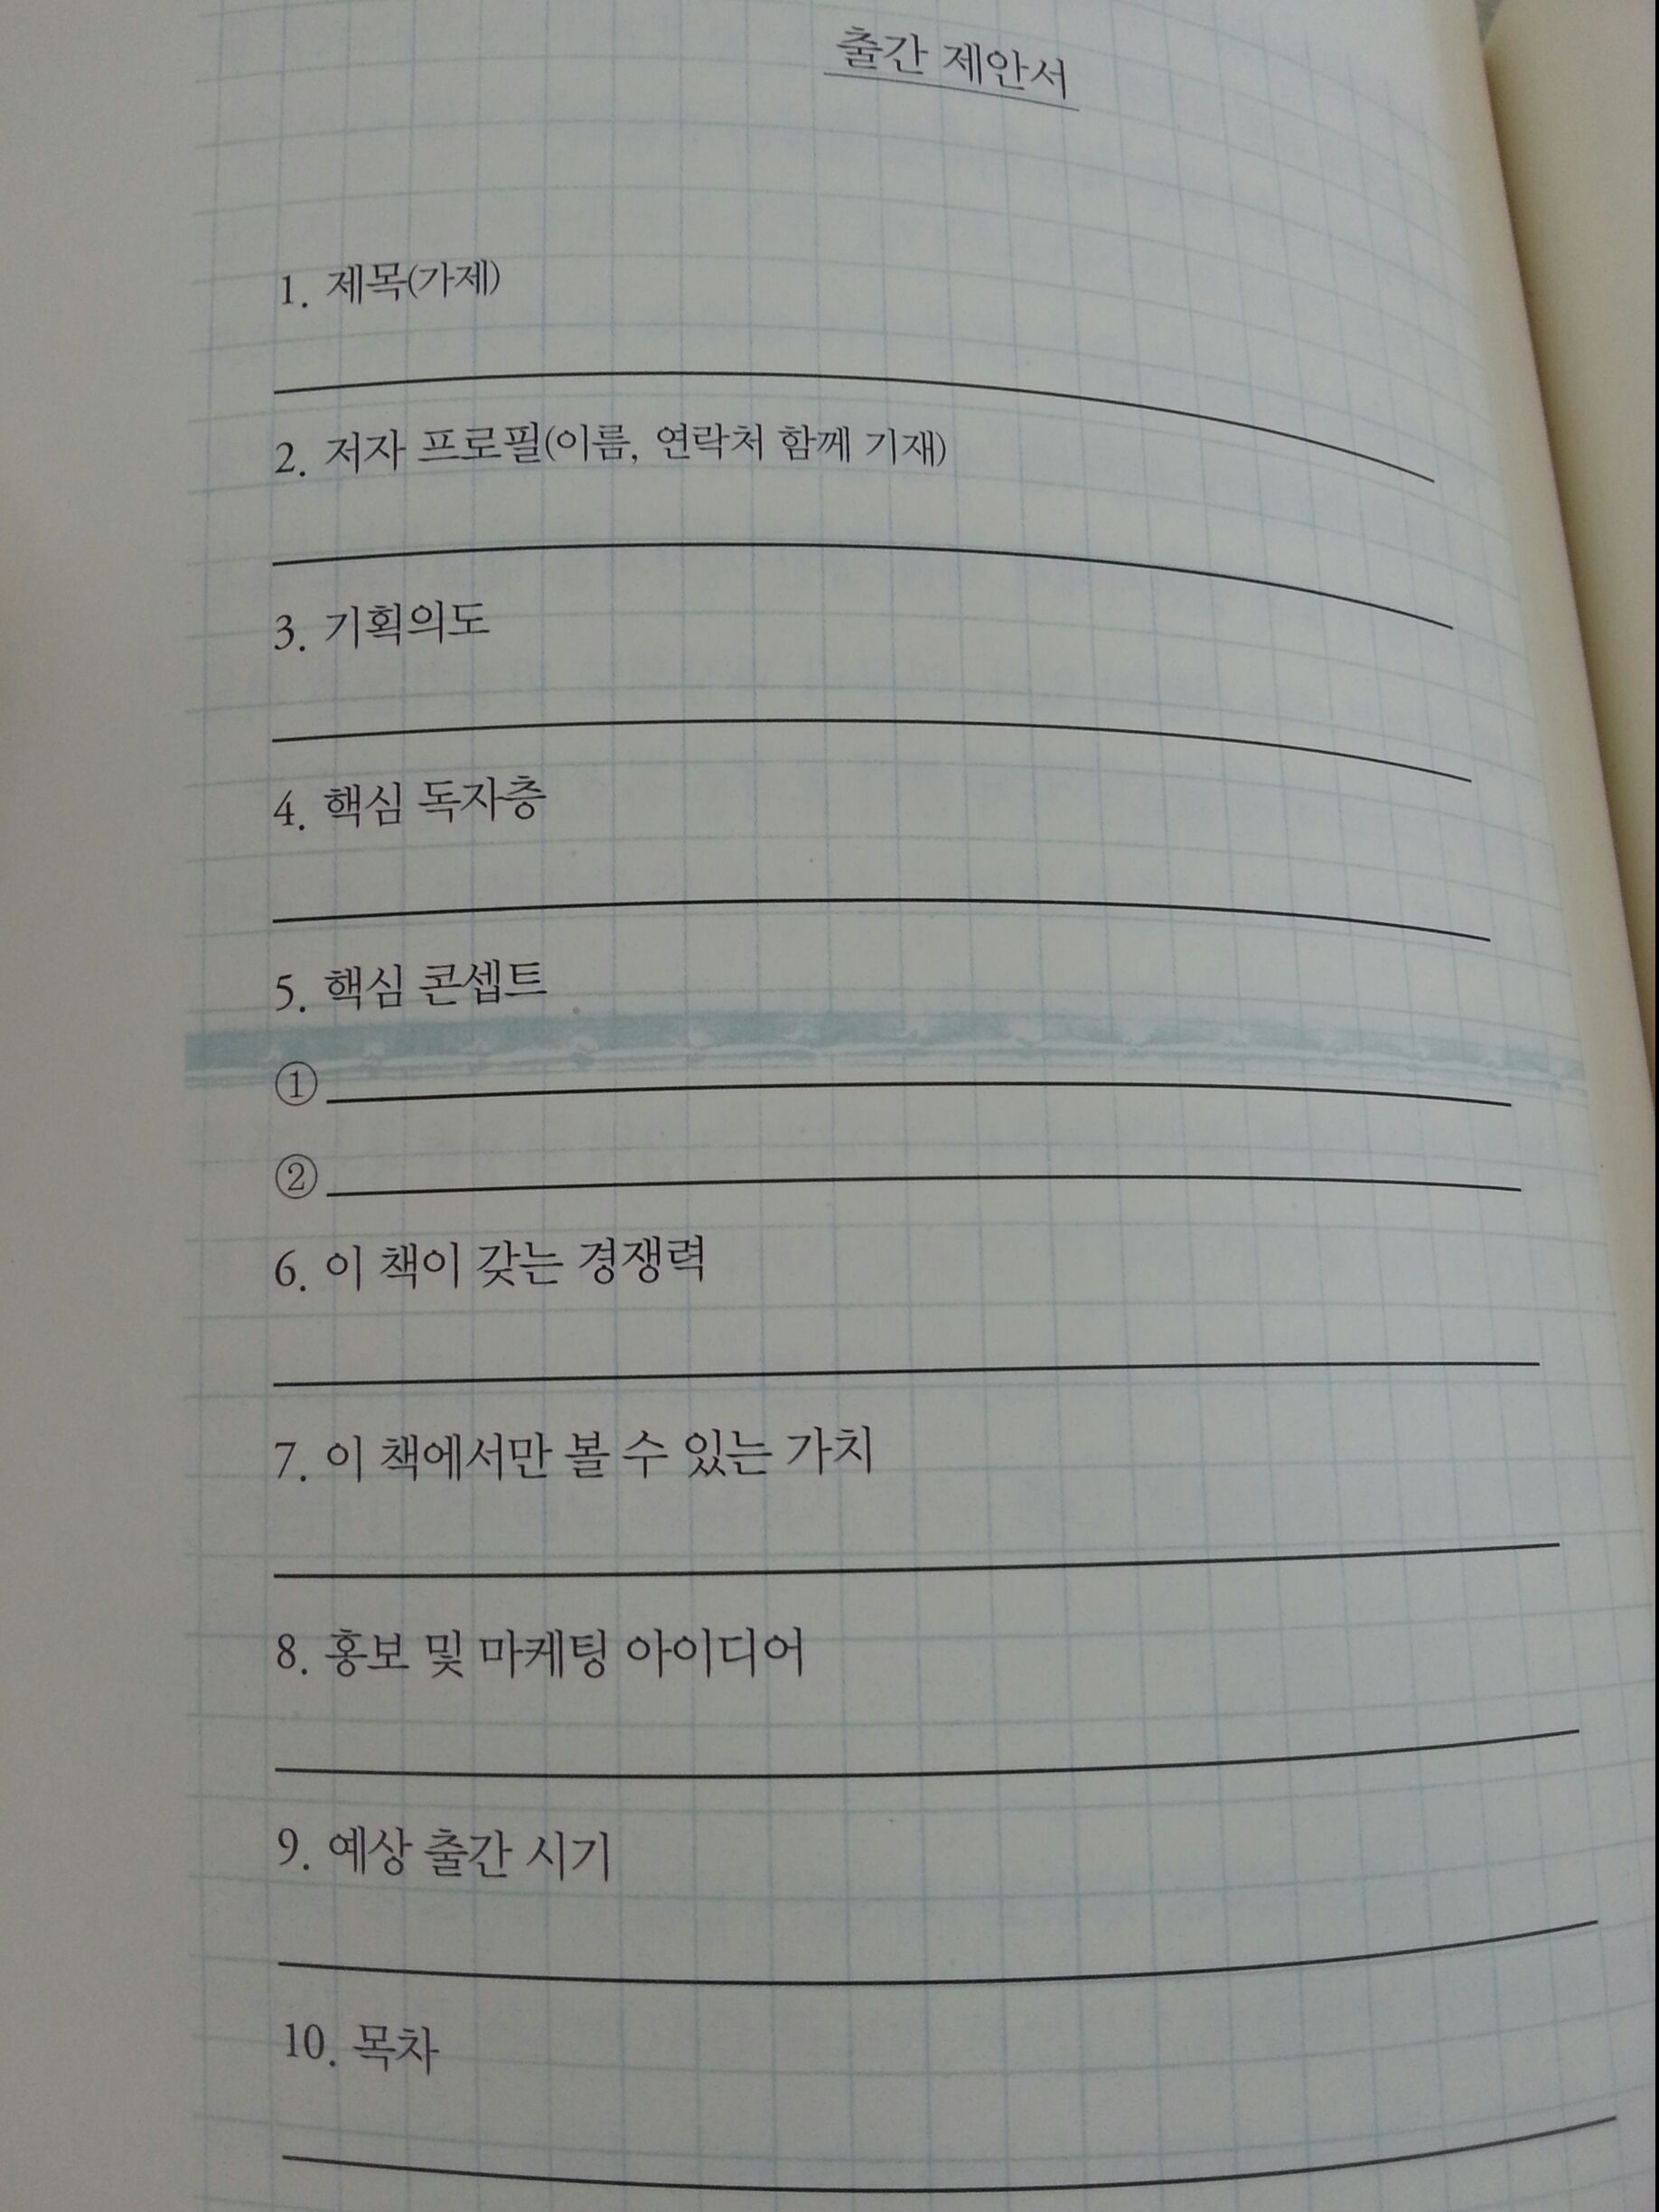 출간 제안서
1. 제목(가제)
2. 저자 프로필(이름, 연락처 함께 기재)
3. 기획의도
4. 핵심 독자층
5. 핵심 콘셉트
①
②
6. 이 책이 갖는 경쟁력
7. 이 책에서만 볼 수 있는 가치
8. 홍보 및 마케팅 아이디어
9. 예상 출간 시기
10. 목차